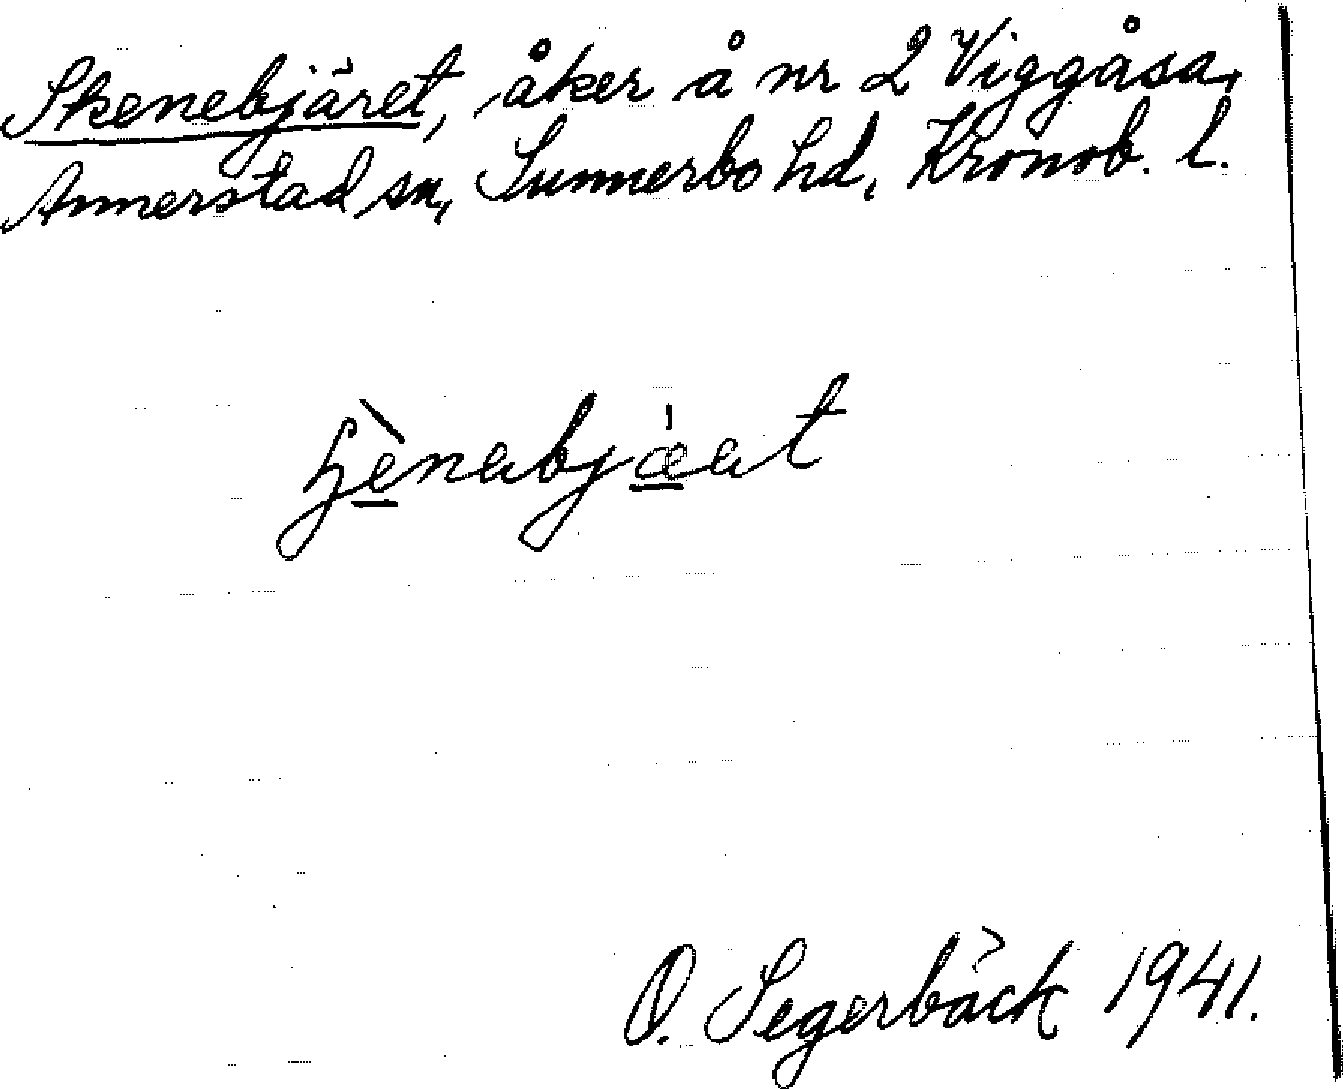 Skenebjäret, åker å nr 2 Viggåsa,
Annerstad sn, Sunnerbo hd, Kronob. l.
O. Segerbäck 1941.